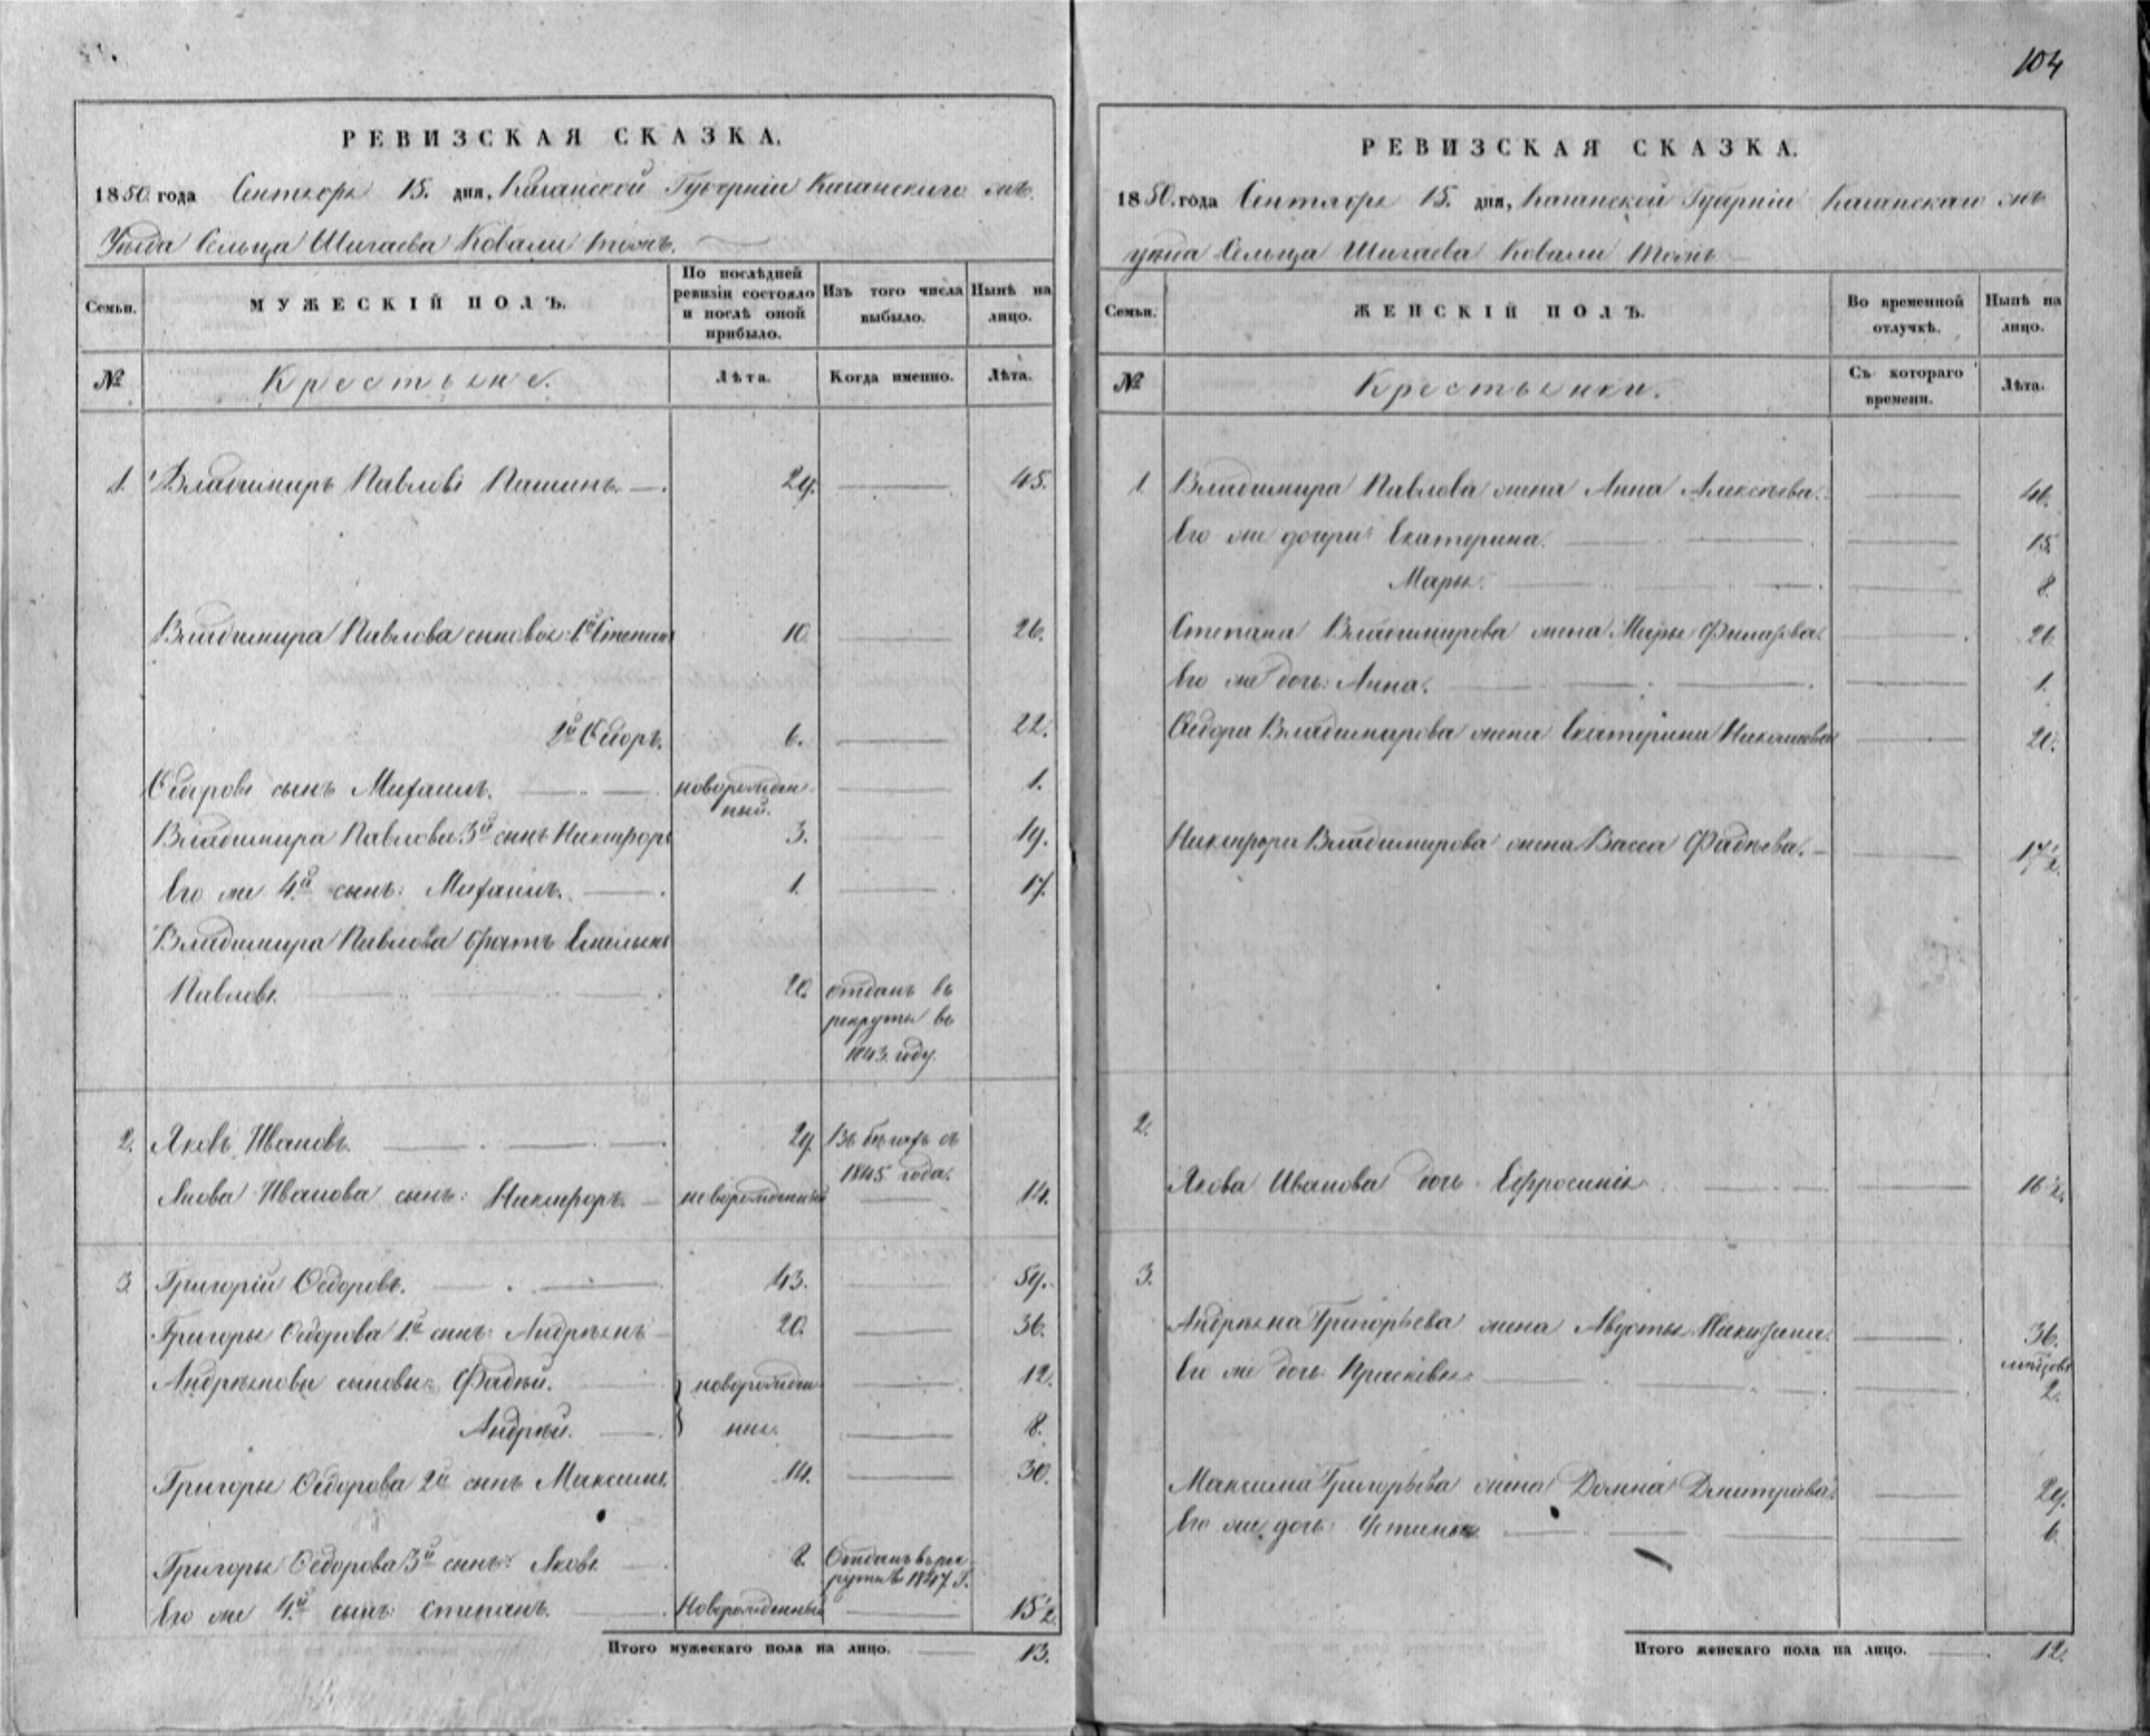 104
РЕВИЗСКАЯ СКАЗКА.
1850. года Сентября 15. дня, Казанской Губерніи Казанскаго
Уѣзда Сельца Шигаева Ковали тожъ.
Семьи.
МУЖЕСКІЙ ПОЛЪ.
По послѣдней ревизіи состояло и послѣ оной прибыло.
Изъ того числа выбыло.
Нынѣ на лицо.
№
Крестьяне.
Лѣта.
Когда именно.
Лѣта.
1. Владимиръ Павловъ Пашинъ. — 29. — 45.
Владимира Павлова сыновья: 1й Степанъ 10. — 26.
2й Ѳедоръ. 6. — 22.
Ѳедоровъ сынъ Михаилъ. — новорожден- — 1.
ный.
Владимира Павлова 3й сынъ Никифоръ 3. — 19.
Его же 4й сынъ: Михаилъ. — 1. — 17.
Владимира Павлова братъ Емельянъ
Павловъ. — 20. отданъ въ
рекруты въ
1843. году.
2. Яковъ Ивановъ. — 29. Въ бѣгахъ съ
1845 года.
Якова Иванова сынъ: Никифоръ. — новорожденный — 14.
3. Григорій Ѳедоровъ. — 43. — 59.
Григорья Ѳедорова 1й сынъ: Андреянъ — 20. — 36.
Андреянова сыновья: Фадѣй. — новорожден- — 12.
Андрей. — ные. — 8.
Григорья Ѳедорова 2й сынъ Максимъ. 14. — 30.
Григорья Ѳедорова 3й сынъ: Яковъ — 8. Отданъ въ рек-
руты въ 1847 г.
Его же 4й сынъ: Степанъ. — Новорожденный — 15½.
Итого мужескаго пола на лицо. — 13.
РЕВИЗСКАЯ СКАЗКА.
1850. года Сентября 15. дня, Казанской Губерніи Казанскаго
уѣзда Сельца Шигаева Ковали тожъ
Семьи.
ЖЕНСКІЙ ПОЛЪ.
Во временной отлучкѣ.
Нынѣ на лицо.
№
Крестьянки.
Съ котораго времени.
Лѣта.
1. Владимира Павлова жена Анна Алексѣева. — 46.
Его же дочери: Екатерина. — 15.
Марья. — 8.
Степана Владимирова жена Марья — 26
Его же дочь: Анна. — 1.
Ѳедора Владимирова жена Екатерина Николаева — 20.
Никифора Владимирова жена Васса Фадѣева. — 17½.
2.
Якова Иванова дочь Ефросинья — 16½.
3.
Андреяна Григорьева жена — 36.
Его же дочь Прасковья — 2.
Максима Григорьева жена Домна Дмитріева. — 29.
Его же дочь: Устинья — 6.
Итого женскаго пола на лицо. — 12.